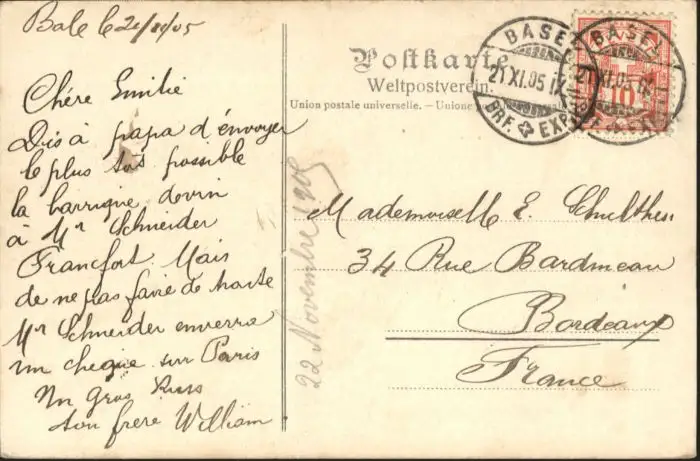 Bale le 21/11/05
Chère Emilie
Dis à papa d'envoyer
le plus tôt possible
la barrique de vin
à Mr Schneider
Francfort. Mais
de ne pas faire de traite
Mr Schneider enverra
un cheque sur Paris
Un Gros Kuss
ton frere William
Postkarte.
Weltpostverein.
Union postale universelle. — Unione postale
BASEL
21.XI.05.IX
BRF. EXP.
BASEL
21.XI.05.IX
10
22 Novembre 1905
Mademoiselle E. Schulthess
34 Rue Bardineau
Bordeaux
France